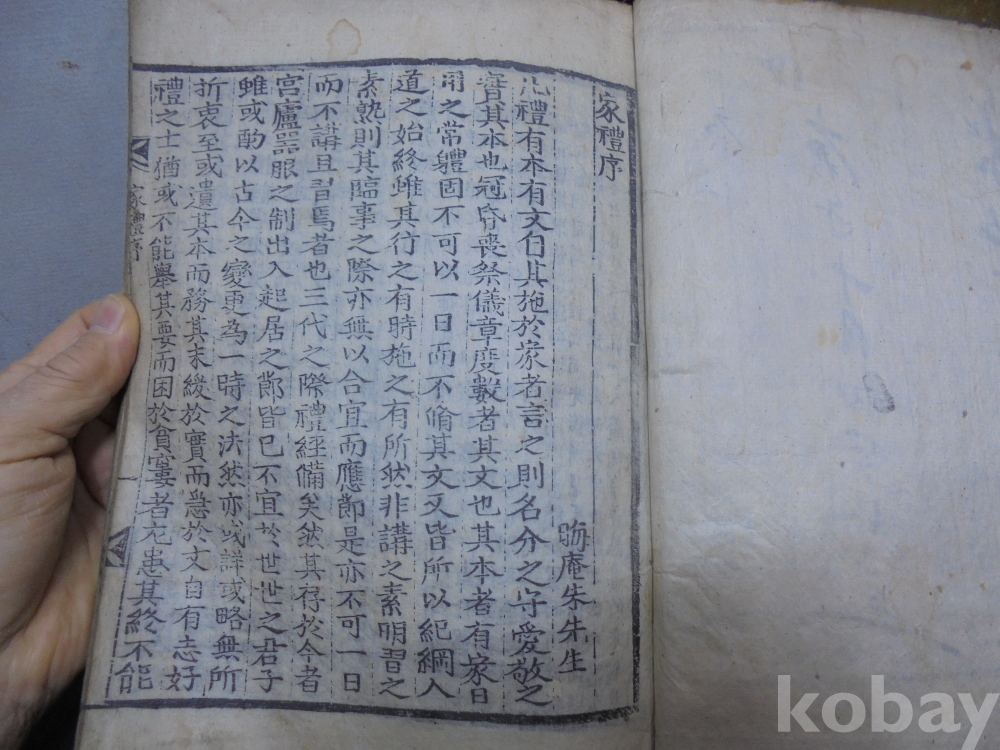 家禮序
晦庵朱先生
凡禮有本有文自其施於家者言之則名分之守愛敬之
實其本也冠昏喪祭儀章度數者其文也其本者有家日
用之常軆固不可以一日而不脩其文又皆所以紀綱人
道之始終雖其行之有時施之有所然非講之素明習之
素熟則其臨事之際亦無以合宜而應節是亦不可一日
而不講且習焉者也三代之際禮經備矣然其存於今者
宮廬器服之制出入起居之節皆已不宜於世世之君子
雖或酌以古今之變更為一時之法然亦或詳或略無所
折衷至或遺其本而務其末緩於實而急於文自有志好
禮之士猶或不能舉其要而困於貧窶者尤患其終不能
家禮序
一
kobay